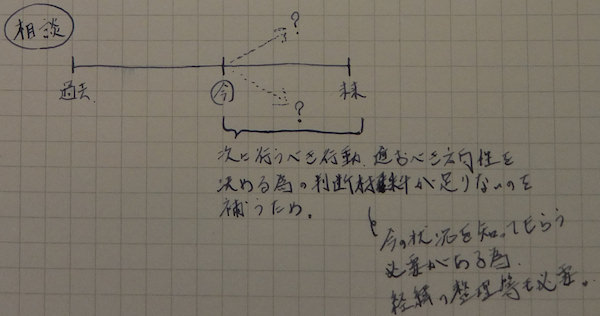 相談
?
過去
今
未来
?
次に行うべき行動、進むべき方向性を
決める為の判断材料が足りないのを
補うため。
今の状況を知ってもらう
必要がある為、
経緯の整理等も必要。